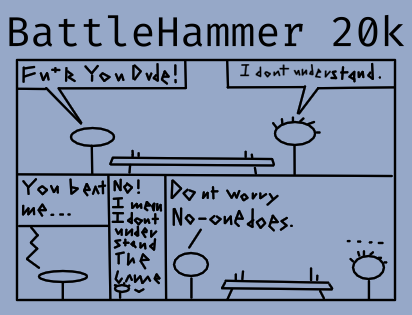 BattleHammer 20k
Fu*k You Dude!
I dont understand.
You beat
me...
No!
I mean
I dont
under
stand
The
Game
Dont worry
No-one does.
....